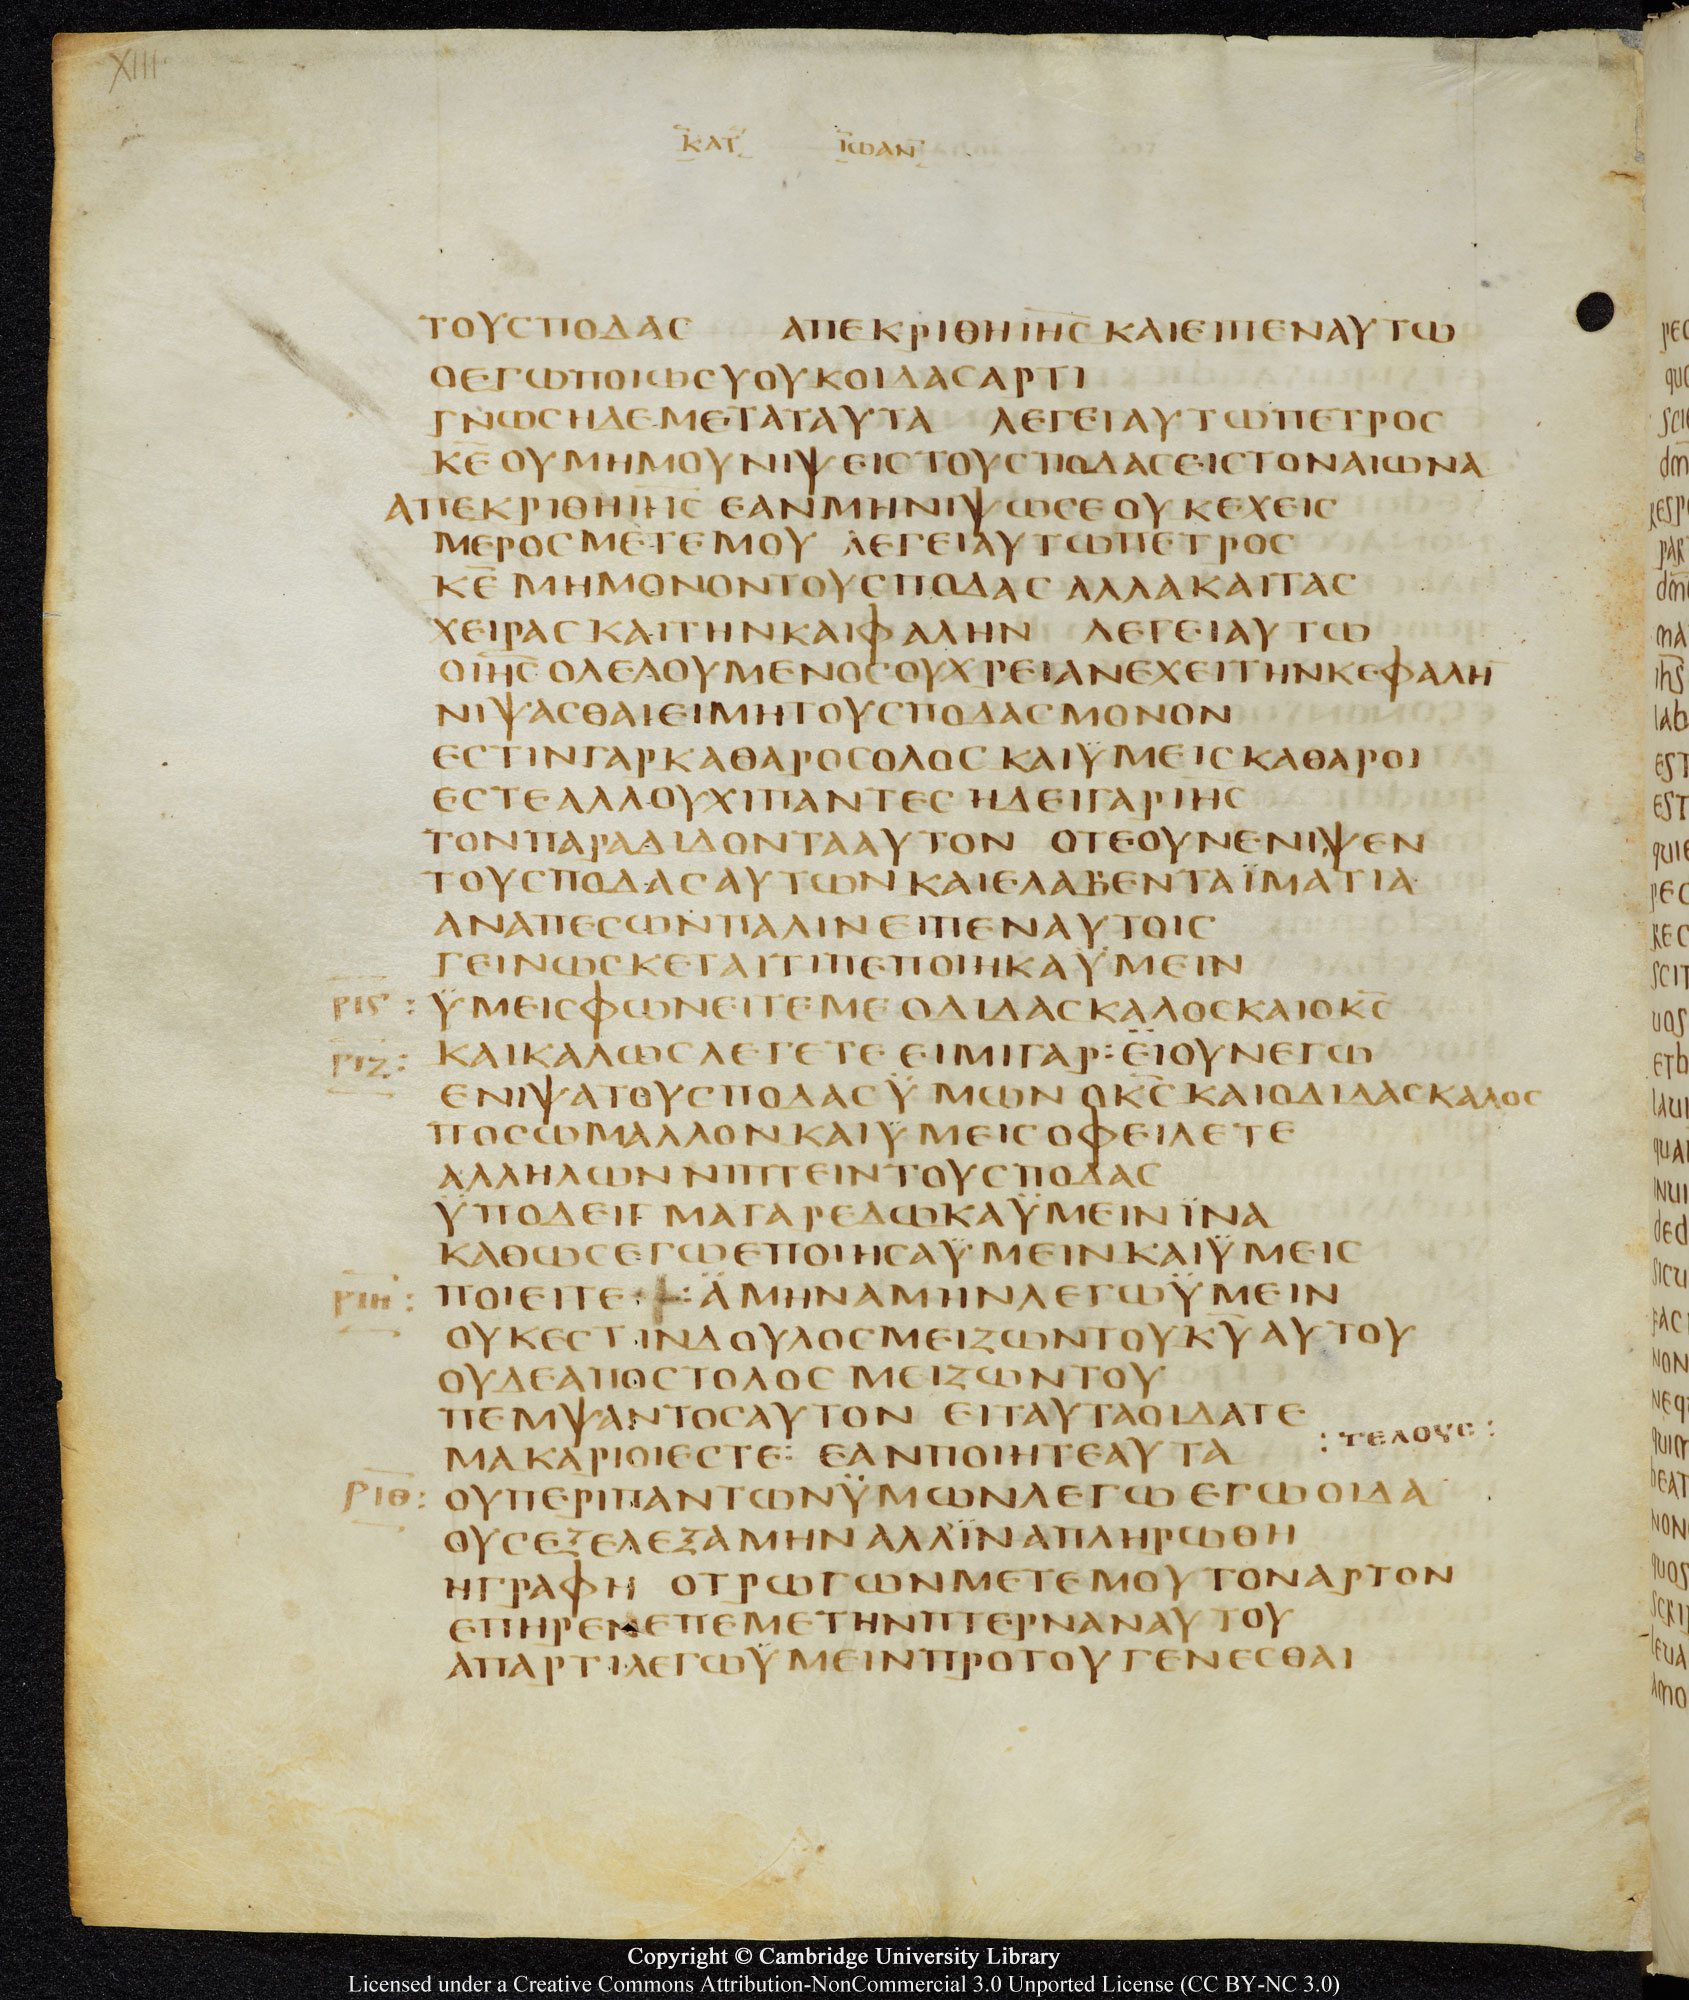 XIII
ΚΑΤ ΙΩΑΝ
ΤΟΥΣΠΟΔΑΣ ΑΠΕΚΡΙΘΗΙΗΣ ΚΑΙΕΙΠΕΝΑΥΤΩ
ΟΕΓΩΠΟΙΩΣΥΟΥΚΟΙΔΑΣΑΡΤΙ
ΓΝΩΣΗΔΕΜΕΤΑΤΑΥΤΑ ΛΕΓΕΙΑΥΤΩΠΕΤΡΟΣ
ΚΕ ΟΥΜΗΜΟΥΝΙΨΕΙΣΤΟΥΣΠΟΔΑΣΕΙΣΤΟΝΑΙΩΝΑ
ΑΠΕΚΡΙΘΗΙΗΣ ΕΑΝΜΗΝΙΨΩΣΕΟΥΚΕΧΕΙΣ
ΜΕΡΟΣΜΕΤΕΜΟΥ ΛΕΓΕΙΑΥΤΩΠΕΤΡΟΣ
ΚΕ ΜΗΜΟΝΟΝΤΟΥΣΠΟΔΑΣ ΑΛΛΑΚΑΙΤΑΣ
ΧΕΙΡΑΣΚΑΙΤΗΝΚΑΙΦΑΛΗΝ ΛΕΓΕΙΑΥΤΩ
ΟΙΗΣΟΛΕΛΟΥΜΕΝΟΣΟΥΧΡΕΙΑΝΕΧΕΙΤΗΝΚΕΦΑΛΗ̅
ΝΙΨΑΣΘΑΙΕΙΜΗΤΟΥΣΠΟΔΑΣΜΟΝΟΝ
ΕΣΤΙΝΓΑΡΚΑΘΑΡΟΣΟΛΟΣ ΚΑΙΫΜΕΙΣΚΑΘΑΡΟΙ
ΕΣΤΕΑΛΛΟΥΧΙΠΑΝΤΕΣ ΗΔΕΙΓΑΡΙΗΣ
ΤΟΝΠΑΡΑΔΙΔΟΝΤΑΑΥΤΟΝ ΟΤΕΟΥΝΕΝΙΨΕΝ
ΤΟΥΣΠΟΔΑΣΑΥΤΩΝΚΑΙΕΛΑΒΕΝΤΑΪΜΑΤΙΑ
ΑΝΑΠΕΣΩΝΠΑΛΙΝΕΙΠΕΝΑΥΤΟΙΣ
ΓΕΙΝΩΣΚΕΤΑΙΤΙΠΕΠΟΙΗΚΑΫΜΕΙΝ
ΡΙϚ : ΫΜΕΙΣΦΩΝΕΙΤΕΜΕΟΔΙΔΑΣΚΑΛΟΣΚΑΙΟΚΣ
ΡΙΖ : ΚΑΙΚΑΛΩΣΛΕΓΕΤΕΕΙΜΙΓΑΡ : ΕΙΟΥΝΕΓΩ
ΕΝΙΨΑΤΟΥΣΠΟΔΑΣΫΜΩΝΟΚΣΚΑΙΟΔΙΔΑΣΚΑΛΟΣ
ΠΟΣΩΜΑΛΛΟΝΚΑΙΫΜΕΙΣΟΦΕΙΛΕΤΕ
ΑΛΛΗΛΩΝΝΙΠΤΕΙΝΤΟΥΣΠΟΔΑΣ
ΫΠΟΔΕΙΓΜΑΓΑΡΕΔΩΚΑΫΜΕΙΝΪΝΑ
ΚΑΘΩΣΕΓΩΕΠΟΙΗΣΑΫΜΕΙΝΚΑΙΫΜΕΙΣ
ΡΙΗ : ΠΟΙΕΙΤΕ : ΑΜΗΝΑΜΗΝΛΕΓΩΫΜΕΙΝ
ΟΥΚΕΣΤΙΝΔΟΥΛΟΣΜΕΙΖΩΝΤΟΥΚΥΑΥΤΟΥ
ΟΥΔΕΑΠΟΣΤΟΛΟΣΜΕΙΖΩΝΤΟΥ
ΠΕΜΨΑΝΤΟΣΑΥΤΟΝ ΕΙΤΑΥΤΑΟΙΔΑΤΕ
ΜΑΚΑΡΙΟΙΕΣΤΕ : ΕΑΝΠΟΙΗΤΕΑΥΤΑ : ΤΕΛΟΥΣ :
ΡΙΘ : ΟΥΠΕΡΙΠΑΝΤΩΝΫΜΩΝΛΕΓΩΕΓΩΟΙΔΑ
ΟΥΣΕΞΕΛΕΞΑΜΗΝΑΛΛΪΝΑΠΛΗΡΩΘΗ
ΗΓΡΑΦΗ ΟΤΡΩΓΩΝΜΕΤΕΜΟΥΤΟΝΑΡΤΟΝ
ΕΠΗΡΕΝΕΠΕΜΕΤΗΝΠΤΕΡΝΑΝΑΥΤΟΥ
ΑΠΑΡΤΙΛΕΓΩΫΜΕΙΝΠΡΟΤΟΥΓΕΝΕΣΘΑΙ
Copyright © Cambridge University Library
Licensed under a Creative Commons Attribution-NonCommercial 3.0 Unported License (CC BY-NC 3.0)